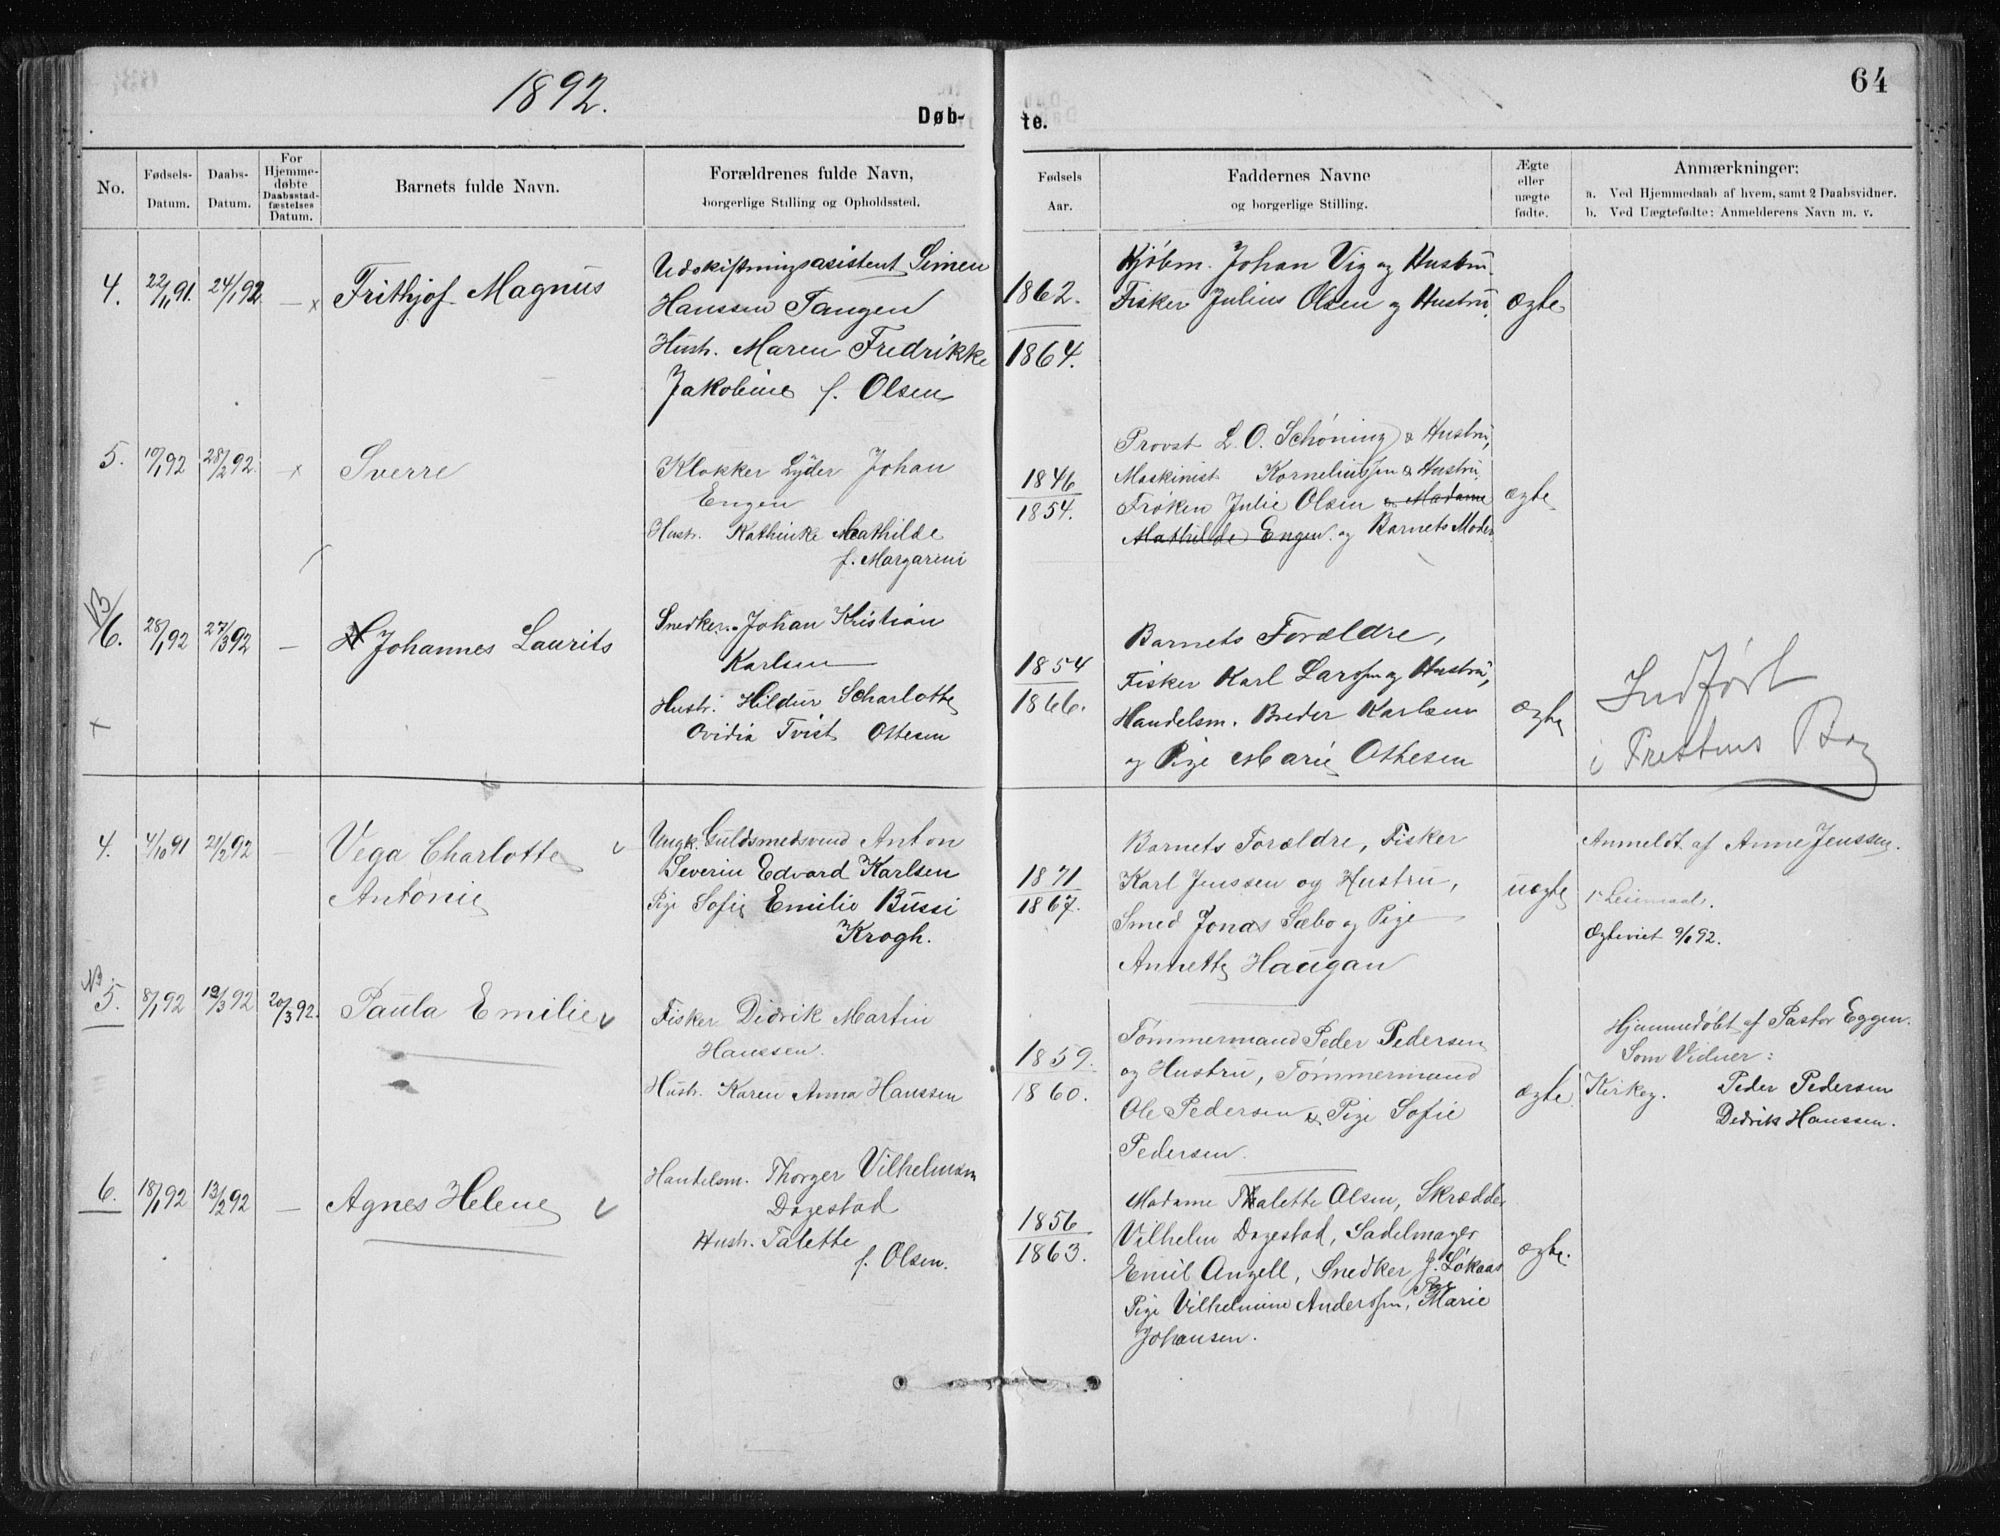 1892.
64
Døb-
te.
No.
Fødsels-
Datum.
Daabs-
Datum.
For
Hjemme-
døbte
Daabsstad-
fæstelses
Datum.
Barnets fulde Navn.
Forældrenes fulde Navn,
borgerlige Stilling og Opholdssted.
Fødsels
Aar.
Faddernes Navne
og borgerlige Stilling.
Ægte
eller
uægte
fødte.
Anmærkninger:
a. Ved Hjemmedaab af hvem, samt 2 Daabsvidner.
b. Ved Uægtefødte: Anmelderens Navn m. v.
4. 22/11 91. 24/1 92 — x Frithjof Magnus
Udskiftningsasistent Simen
Hanssen Tangen
Hustr. Maren Fredrikke
Jakobine f. Olsen
1862.
1864.
Kjøbm. Johan Vig og Hustru.
Fisker Julius Olsen og Hustru.
ægte
5. 10/1 92 28/2 92. — x Sverre
Klokker Lyder Johan
Engen
Hustr. Kathinke Mathilde
f. Margarini
1846
1854.
Provst L. O. Schøning & Hustru,
Maskinist Korneliussen & Hustru
Frøken Julie Olsen & Madame
Mathilde Engen. og Barnets Moder
ægte
NB
6. 28/1 92 27/3 92 — Johannes Laurits
x
Snedker Johan Kristian
Karlsen
Hustr. Hildur Scharlotte
Ovidia Tvist Ottesen
1854
1866.
Barnets Forældre,
Fisker Karl Larssen og Hustru,
Handelsm. Breder Karlsen
og Pige Marie Othesen
ægte
Indført
i Prestens Bog
4. 4/10 91 21/2 92 — Vega Charlotte
Antonie
Ungk. Guldsmedsvend Anton
Severin Edvard Karlsen
Pige Sofie Emilie Bussi
Krogh.
1871
1867.
Barnets Forældre, Fisker
Karl Jenssen og Hustru,
Smed Jonas Sæbo og Pige
Annette Haugan
uægte
Anmeldt af Anne Jenssen.
1ste Leiermaal.
Ægteviet 9/1 92.
NB
5. 8/1 92 12/3 92 20/3 92. Paula Emilie
Fisker Didrik Martin
Hanssen.
Hustr. Karen Anna Hanssen
1859.
1860.
Tømmermand Peder Pedersen
og Hustru, Tømmermand
Ole Pedersen & Pige Sofie
Pedersen.
ægte
Hjemmedøbt af Pastor Eggen.
Som Vidner:
Kirkeg. Peder Pedersen
Didrik Hanssen.
6. 18/1 92 13/2 92 — Agnes Helene
Handelsm. Thorger Vilhelmsen
Dagestad
Hustr. Talette
f. Olsen.
1856
1863.
Madame Thalette Olsen, Skrædder
Vilhelm Dagestad, Sadelmager
Emil Angell, Snedker J. Løkaas
Pige Vilhelmine Anderssen, Pige Marie
Johansen.
ægte.